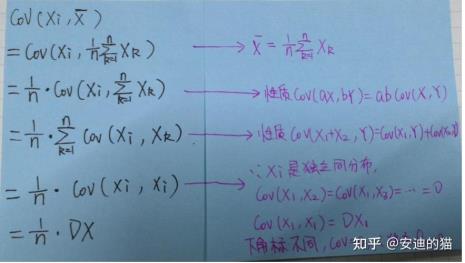 Cov(Xi, X̄)
= Cov(Xi, 1/n ∑_{k=1}^{n} Xk) → X̄ = 1/n ∑_{k=1}^{n} Xk
= 1/n · Cov(Xi, ∑_{k=1}^{n} Xk) → 性质 Cov(aX, bY) = ab Cov(X, Y)
= 1/n · ∑_{k=1}^{n} Cov(Xi, Xk) → 性质 Cov(X1+X2, Y) = Cov(X1, Y) + Cov(X2, Y)
= 1/n · Cov(Xi, Xi) → ∵ Xi 是独立同分布,
Cov(X1, X2) = Cov(X1, X3) = ⋯ = 0
= 1/n · DX
Cov(X1, X1) = DX1
下角标不同, Cov
知乎 @安迪的猫